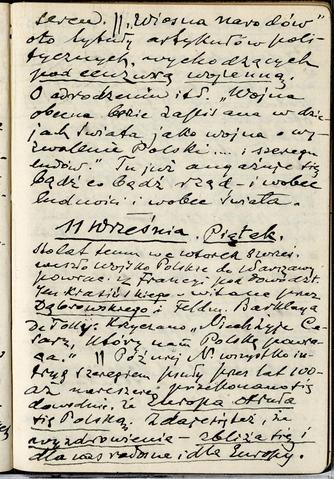 seren. || „Wiosna narodów"
oto tytuły artykułów poli-
tycznych, wychodzących
pod cenzurą wojenną.
O odrodzeniu itd. „Wojna
obecna będzie zapisana w dzie-
jach świata jako wojna o wy-
zwolenie Polski... i szeregu
ludów." Tu już angażuje się
bądź co bądź rząd – i wobec
ludności i wobec świata.
11 Września. Piątek.
Sto lat temu we wtorek 8 wrześ.
weszło wojsko Polskie do Warszawy
powrac. z Francji, pod dowództ.
Jen. Krasińskiego – witane przez
Dąbrowskiego i Feldm. Barklaya
de Tolly: Krzyczano „Niech żyje Ce-
sarz, który nam Polskę powra-
ca." || Później N. wszystko in-
trygi szeregiem psuły przez lat 100 –
aż nareszcie przekonano się
dowodnie, że Europa struła
się Polską. Zdaje się też, że
wyzdrowienie – zbliża się i
dla nas radosne i dla Europy.